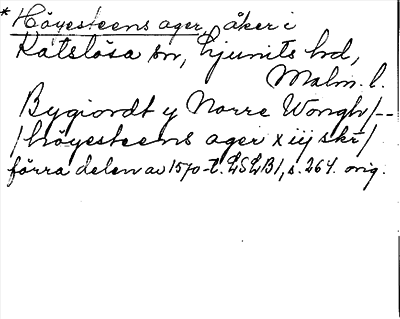 * Höyesteens ager, åker i
Katslösa sn, Ljunits hd,
Malm. l.
Bygiordt y Norre Wongh /--
/ höyesteens ager x iij skr /
förra delen av 1570-t. LSLB1, s. 264. orig.